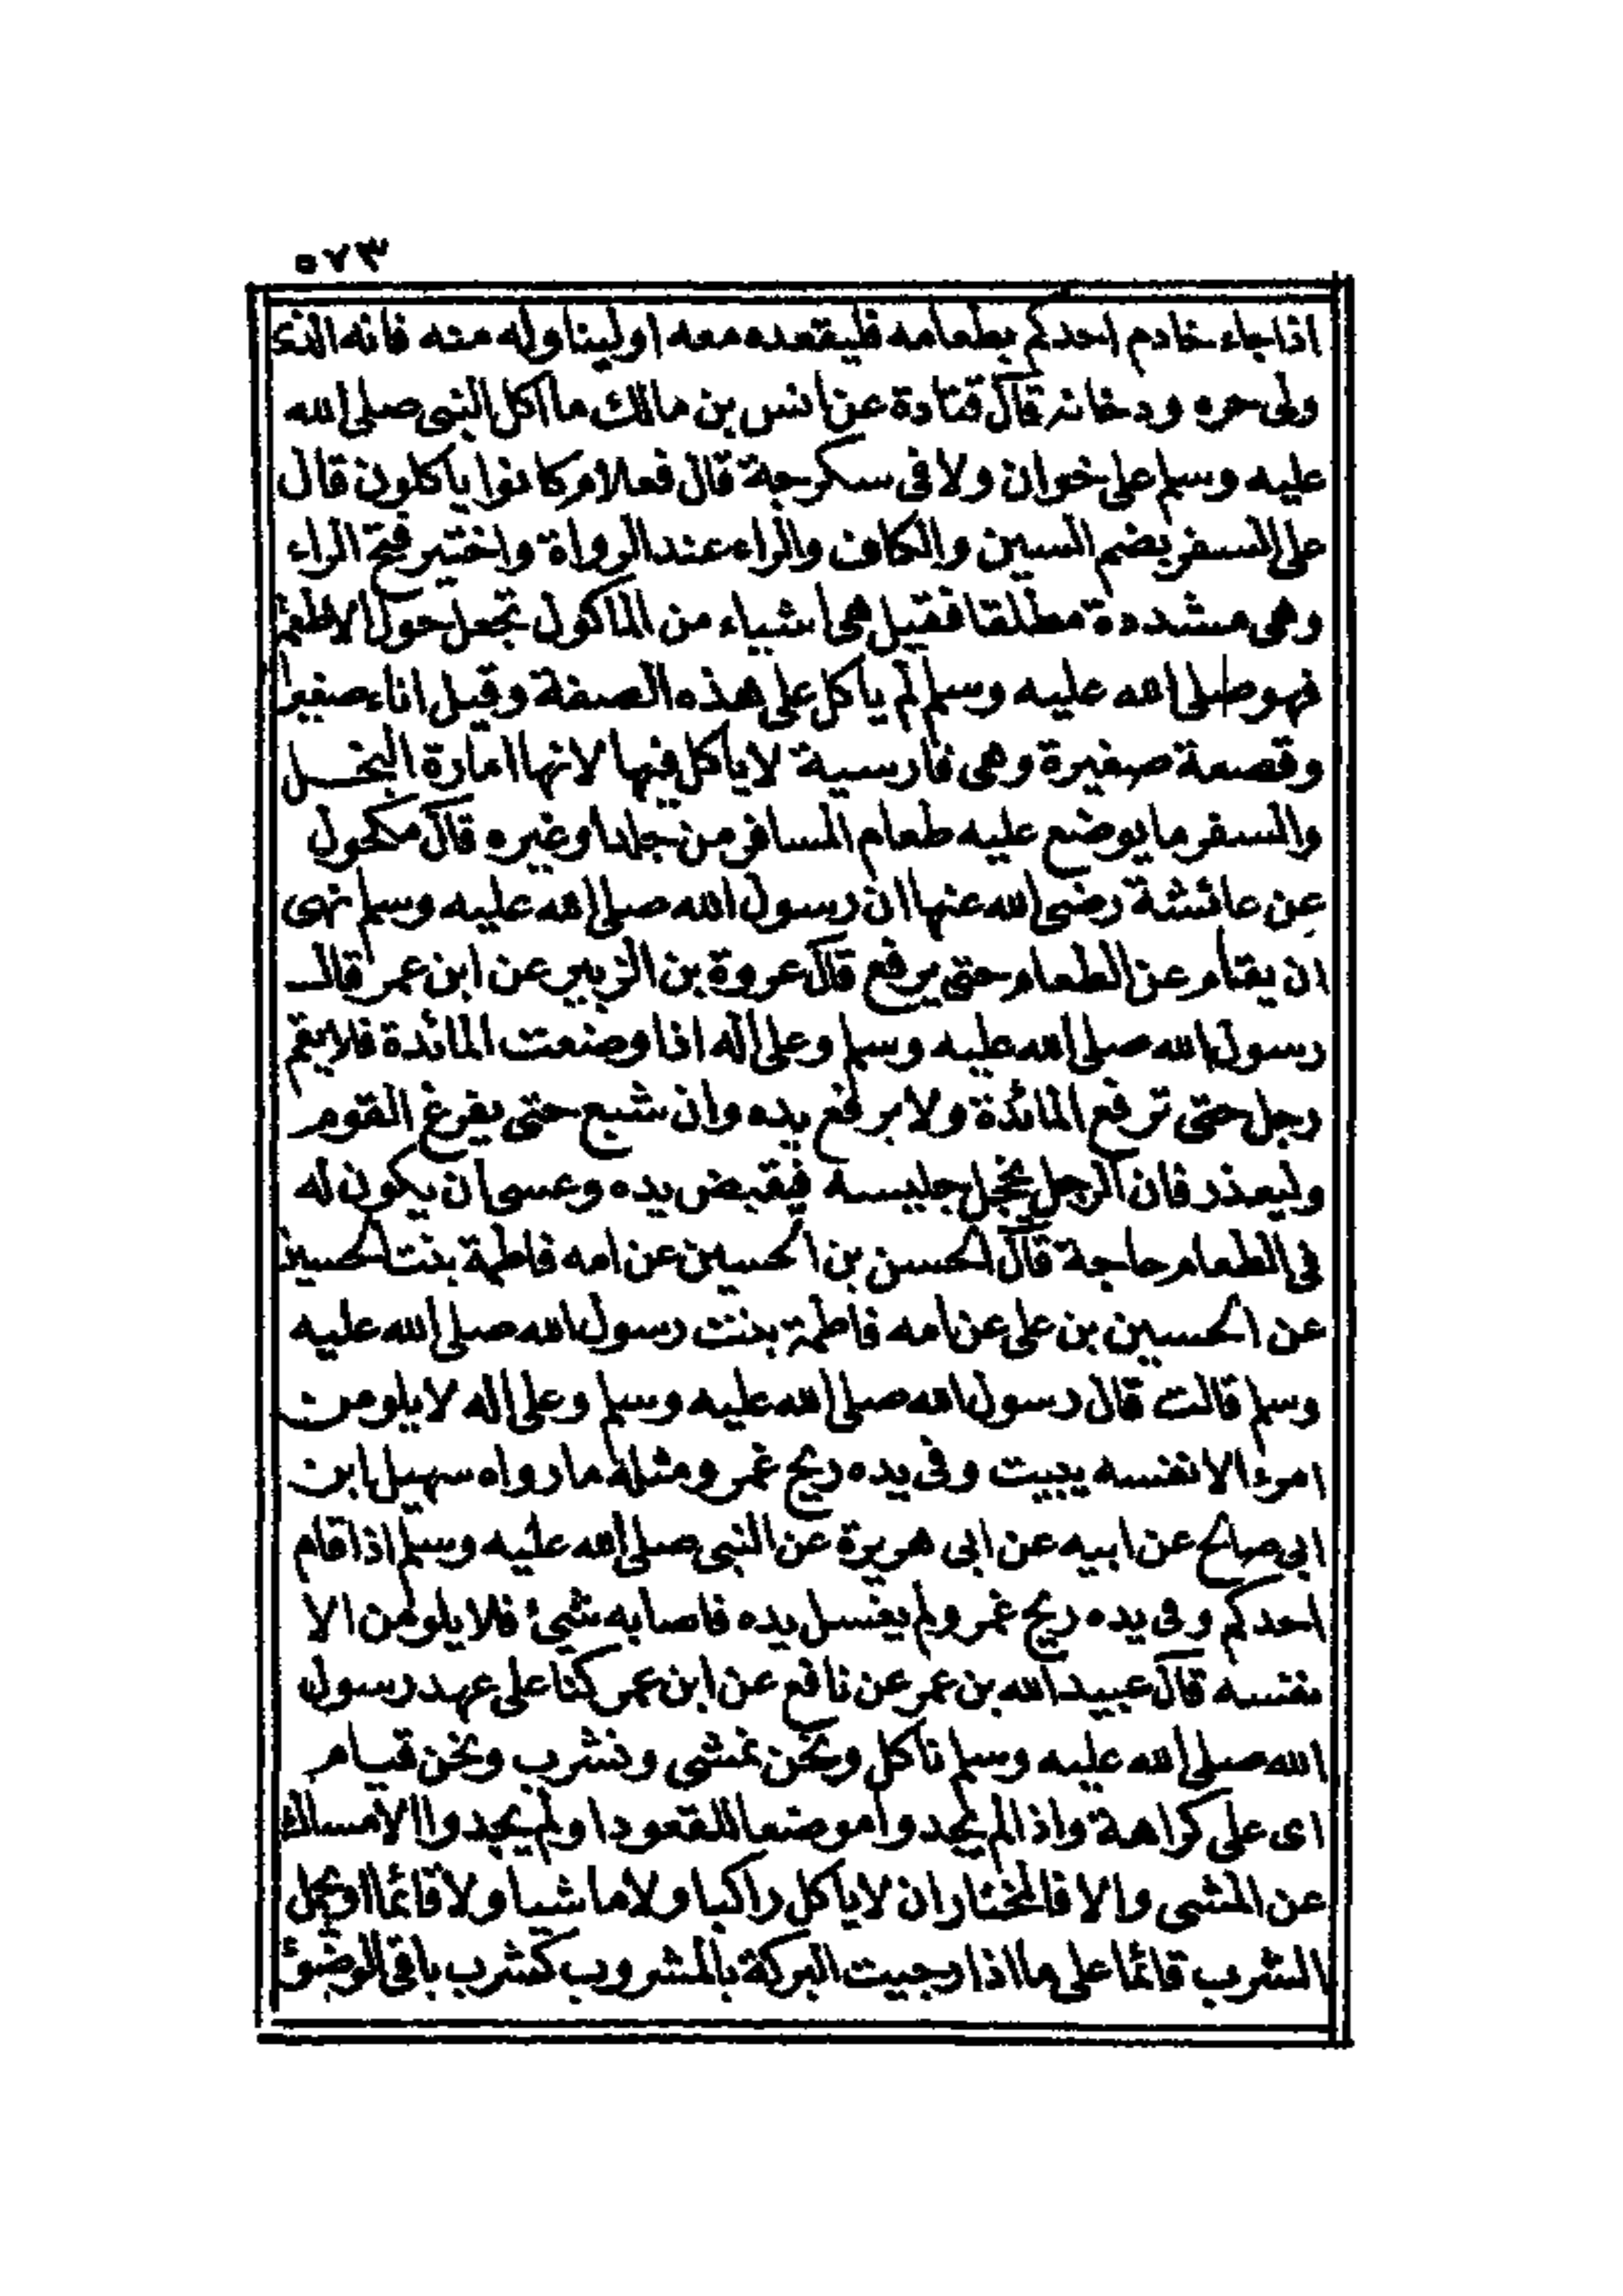 ٥٧٣
اذا جاء خادم احدكم بطعامه فليقعده معه او ليناوله منه فانه الذى
ولى حره ودخانه قال قتادة عن انس بن مالك ما اكل النبى صلى الله
عليه وسلم على خوان ولا فى سكرجة قال فعلام كانوا ياكلون قال
على السفر بضم السين والكاف والراء عند الرواة واختير فتح الراء
وهى مشددة مطلقا فقيل هى اشياء من الماكول تجعل حول الاطعم
فهو صلى الله عليه وسلم لم ياكل على هذه الصفة وقيل اناء صغير ا
وقصعة صغيرة وهى فارسية لا ياكل فيها لانها امارة البخل
والسفر ما يوضع عليه طعام المسافر من جلد او غيره قال مكحول
عن عائشة رضى الله عنها ان رسول الله صلى الله عليه وسلم نهى
ان يقام عن الطعام حتى يرفع قال عروة بن الزبير عن ابن عمر قال
رسول الله صلى الله عليه وسلم وعلى اله اذا وضعت المائدة فلا يقم
رجل حتى ترفع المائدة ولا يرفع يده وان شبع حتى يفرغ القوم
وليعذر فان الرجل يخجل جليسه فيقبض يده وعسى ان يكون له
فى الطعام حاجة قال الحسن بن الحسين عن امه فاطمة بنت الحسين
عن الحسين بن على عن امه فاطمة بنت رسول الله صلى الله عليه
وسلم قالت قال رسول الله صلى الله عليه وسلم وعلى اله لا يلومن
امرء الا نفسه يبيت وفى يده ريح غمر ومثله ما رواه سهيل ابن
ابى صالح عن ابيه عن ابى هريرة عن النبى صلى الله عليه وسلم اذا قام
احدكم وفى يده ريح غمر ولم يغسل يده فاصابه شئ فلا يلومن الا
نفسه قال عبيد الله بن عمر عن نافع عن ابن عمر كنا على عهد رسول
الله صلى الله عليه وسلم ناكل ونحن نمشى ونشرب ونحن قيام
اى على كراهة واذا لم يجدوا موضعا للقعود او لم يجدوا الامساك
عن المشى والا فالمختار ان لا ياكل راكبا ولا ماشيا ولا قائما او يحمل
الشرب قائما على ما اذا رجيت البركة بالمشروب كشرب باقى الوضوئ